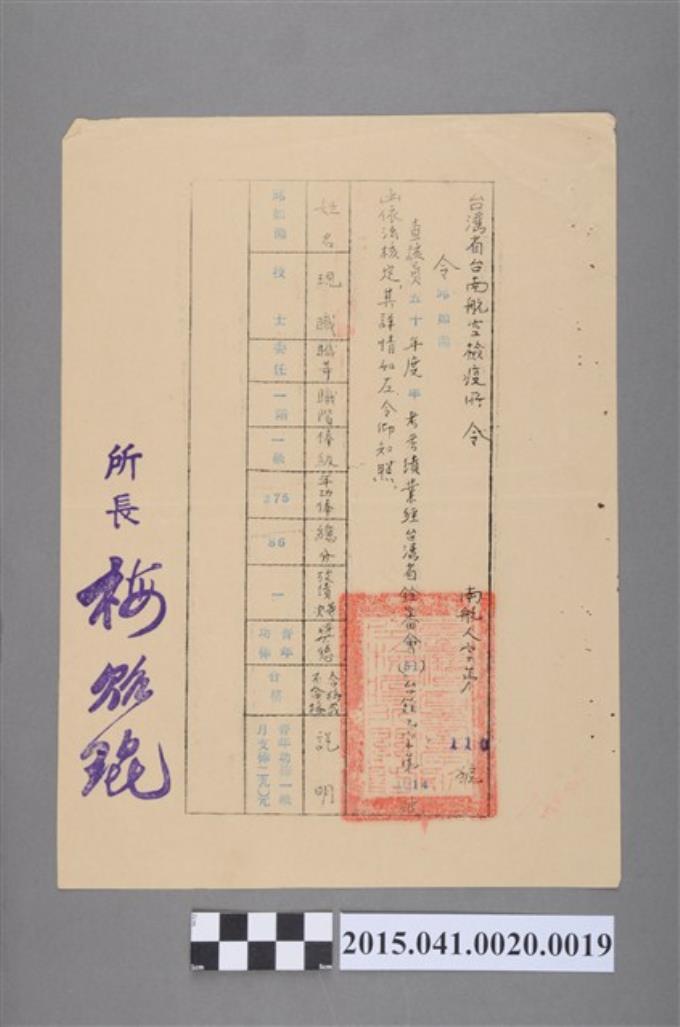 台灣省台南航空檢疫所 令
南航人字第 110 號
令 邱如海
查該員五十年度年考考績業經台灣省銓審會(51)台銓乙字第 號
函依法核定，其詳情如左，令仰知照。
姓名 現職 職等 職階 俸級 年功俸 總分 考績 獎懲 合格或不合格 說明
技士 委任 一階 一級 275 86 一 晉年功俸 合格 晉年功俸一級月支俸二九〇元
所長 梅貽錕
2015.041.0020.0019